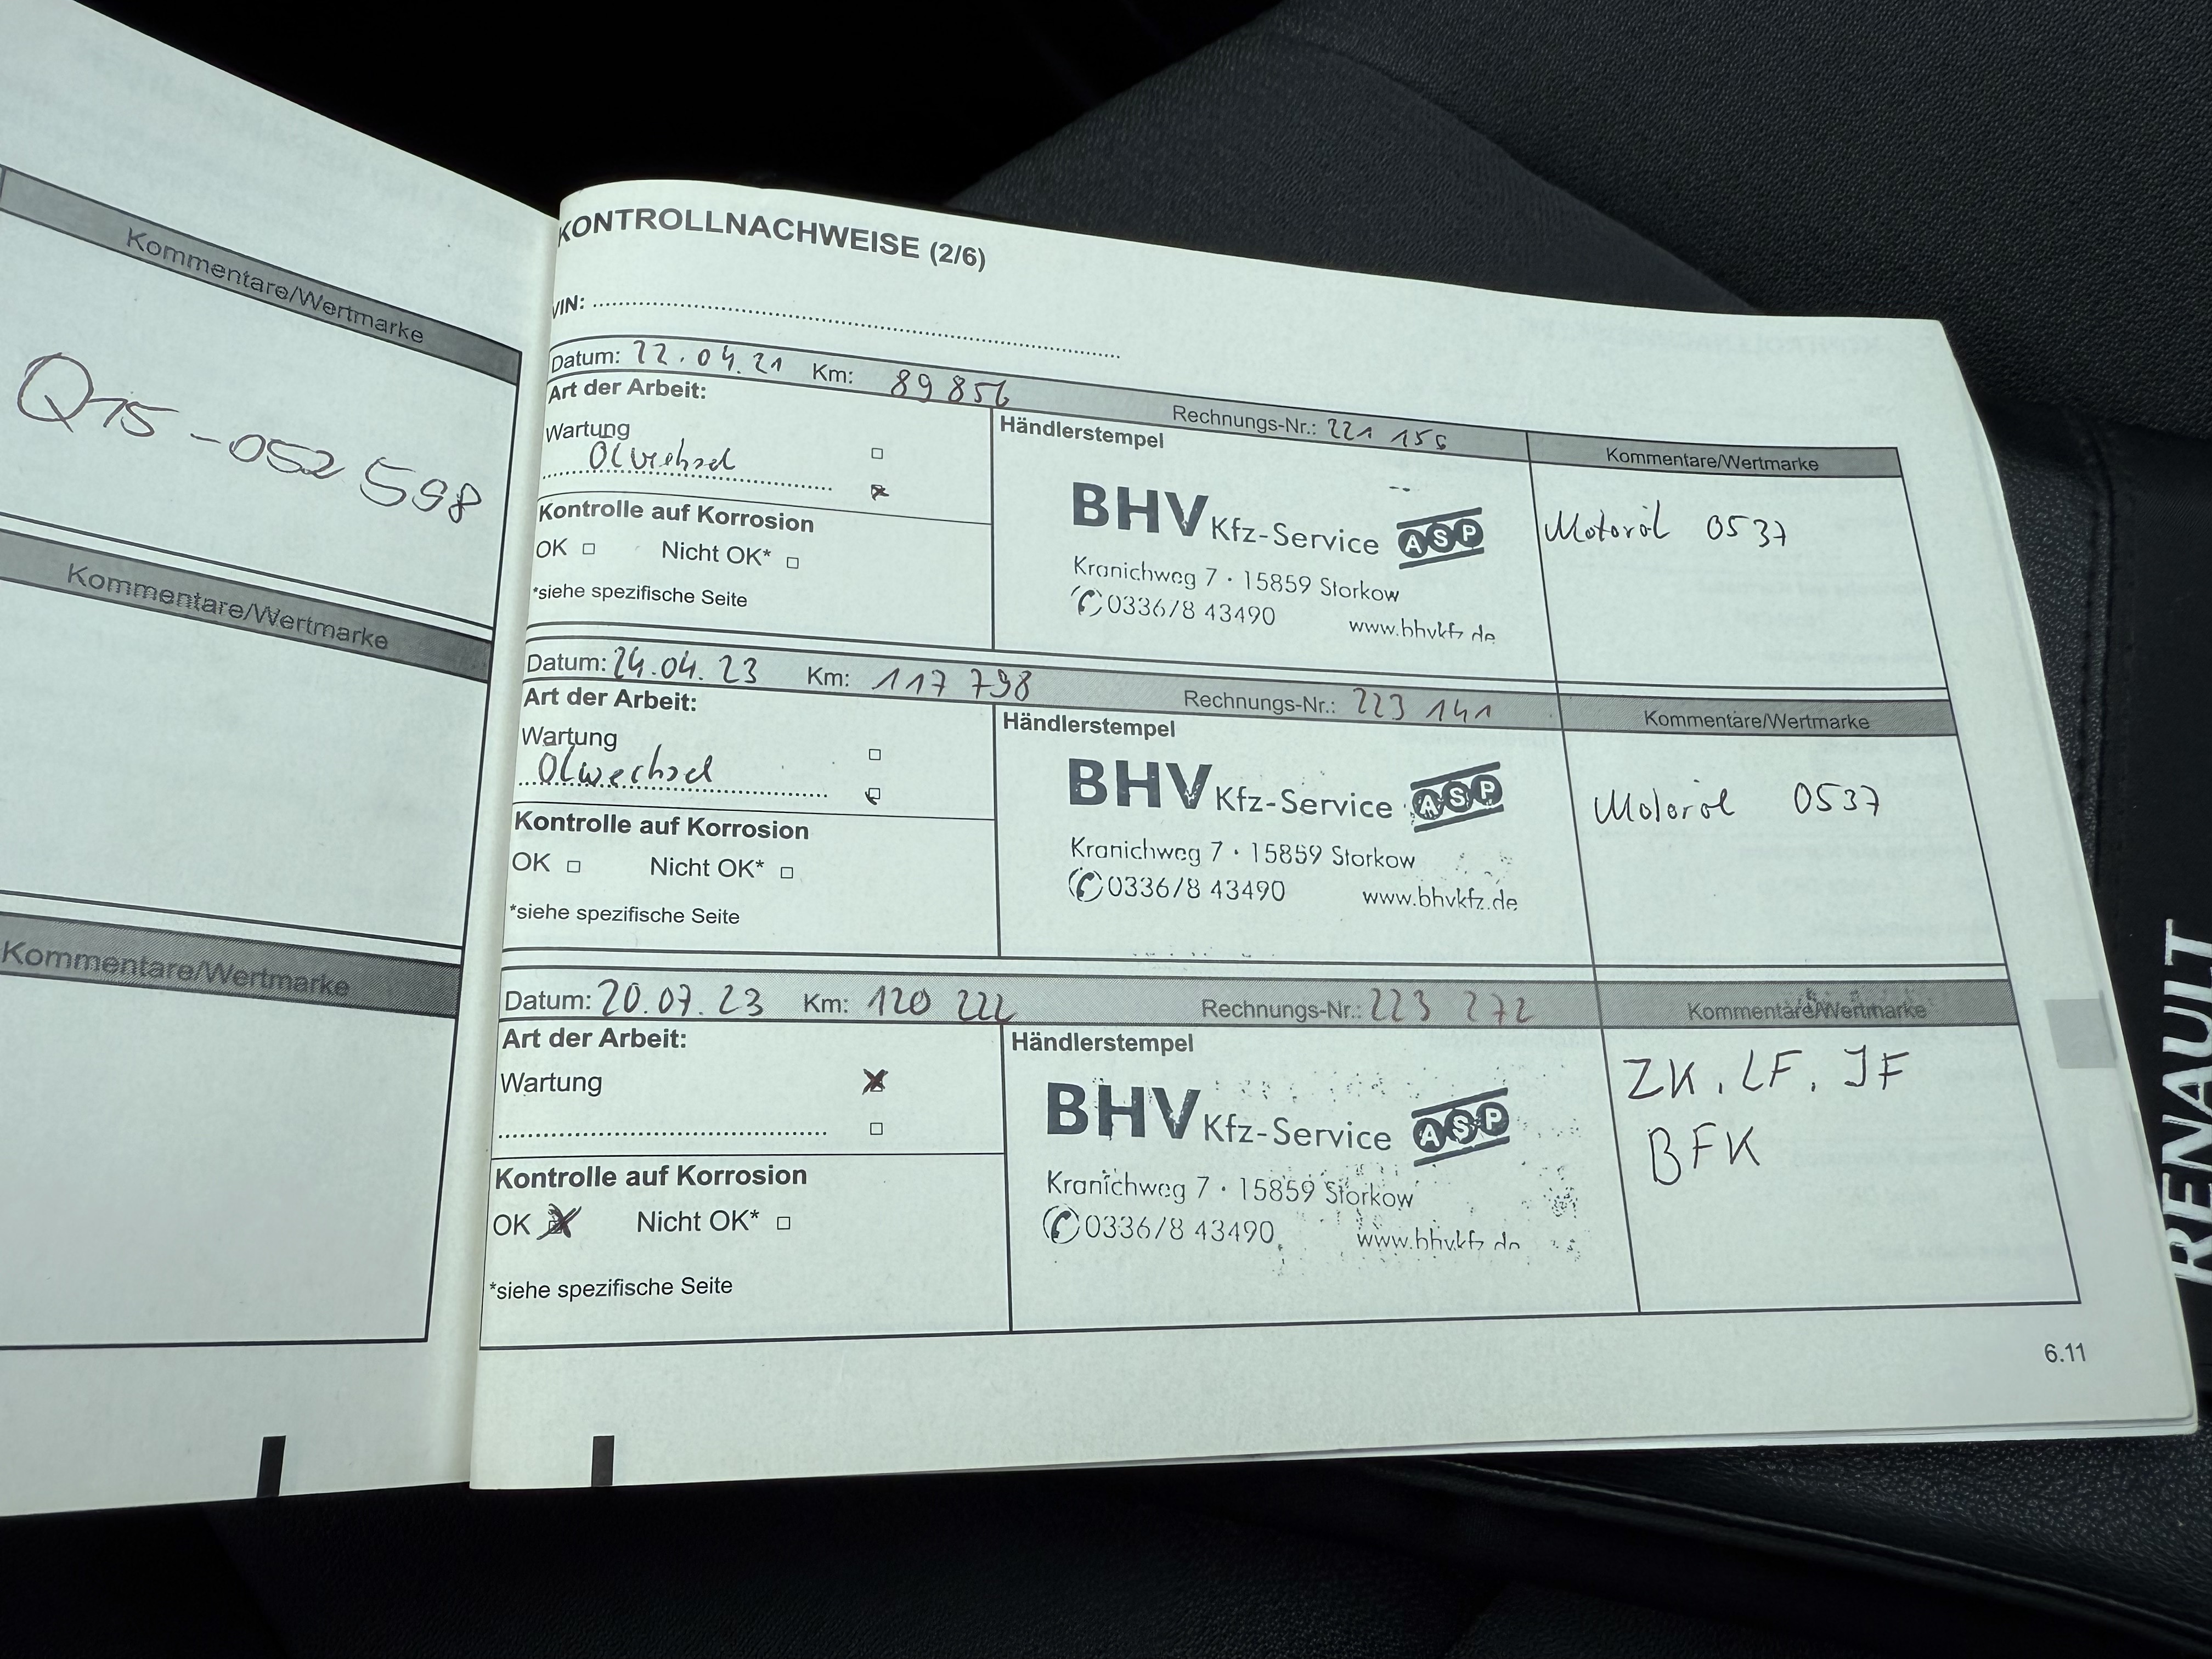 Kommentare/Wertmarke
Q15-052598
Kommentare/Wertmarke
Kommentare/Wertmarke
KONTROLLNACHWEISE (2/6)
VIN:
Datum: 22.04.21 Km: 89 856 Rechnungs-Nr.: 221 156 Kommentare/Wertmarke
Art der Arbeit:
Wartung
Ölwechsel
Kontrolle auf Korrosion
OK Nicht OK*
*siehe spezifische Seite
Händlerstempel
BHV Kfz-Service ASP
Kranichweg 7 · 15859 Storkow
033678 43490 www.bhvkfz.de
Motoröl 0537
Datum: 24.04.23 Km: 117 798 Rechnungs-Nr.: 223 141 Kommentare/Wertmarke
Art der Arbeit:
Wartung
Ölwechsel
Kontrolle auf Korrosion
OK Nicht OK*
*siehe spezifische Seite
Händlerstempel
BHV Kfz-Service ASP
Kranichweg 7 · 15859 Storkow
033678 43490 www.bhvkfz.de
Motoröl 0537
Datum: 20.07.23 Km: 120 222 Rechnungs-Nr.: 223 272 Kommentare/Wertmarke
Art der Arbeit:
Wartung
Kontrolle auf Korrosion
OK Nicht OK*
*siehe spezifische Seite
Händlerstempel
BHV Kfz-Service ASP
Kranichweg 7 · 15859 Storkow
033678 43490 www.bhvkfz.de
ZK, LF, IF
BFK
6.11
RENAULT